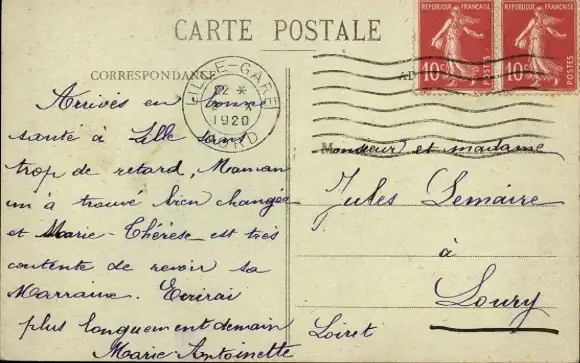 CARTE POSTALE
CORRESPONDANCE
LILLE-GARE
22 *
1920
NORD
REPUBLIQUE FRANÇAISE
10c POSTES
REPUBLIQUE FRANÇAISE
10c POSTES
Arrivés en bonne
santé à Lille sans
trop de retard, Maman
m'a trouvé bien changée
et Marie-Thérèse est très
contente de revoir sa
Marraine. Ecrirai
plus longuement demain
Marie-Antoinette
Monsieur et madame
Jules Lemaire
à
Loury
Loiret